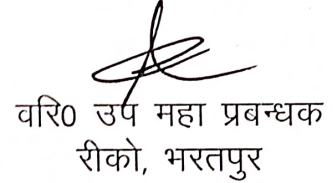 वरि0 उप महा प्रबन्धक
रीको, भरतपुर